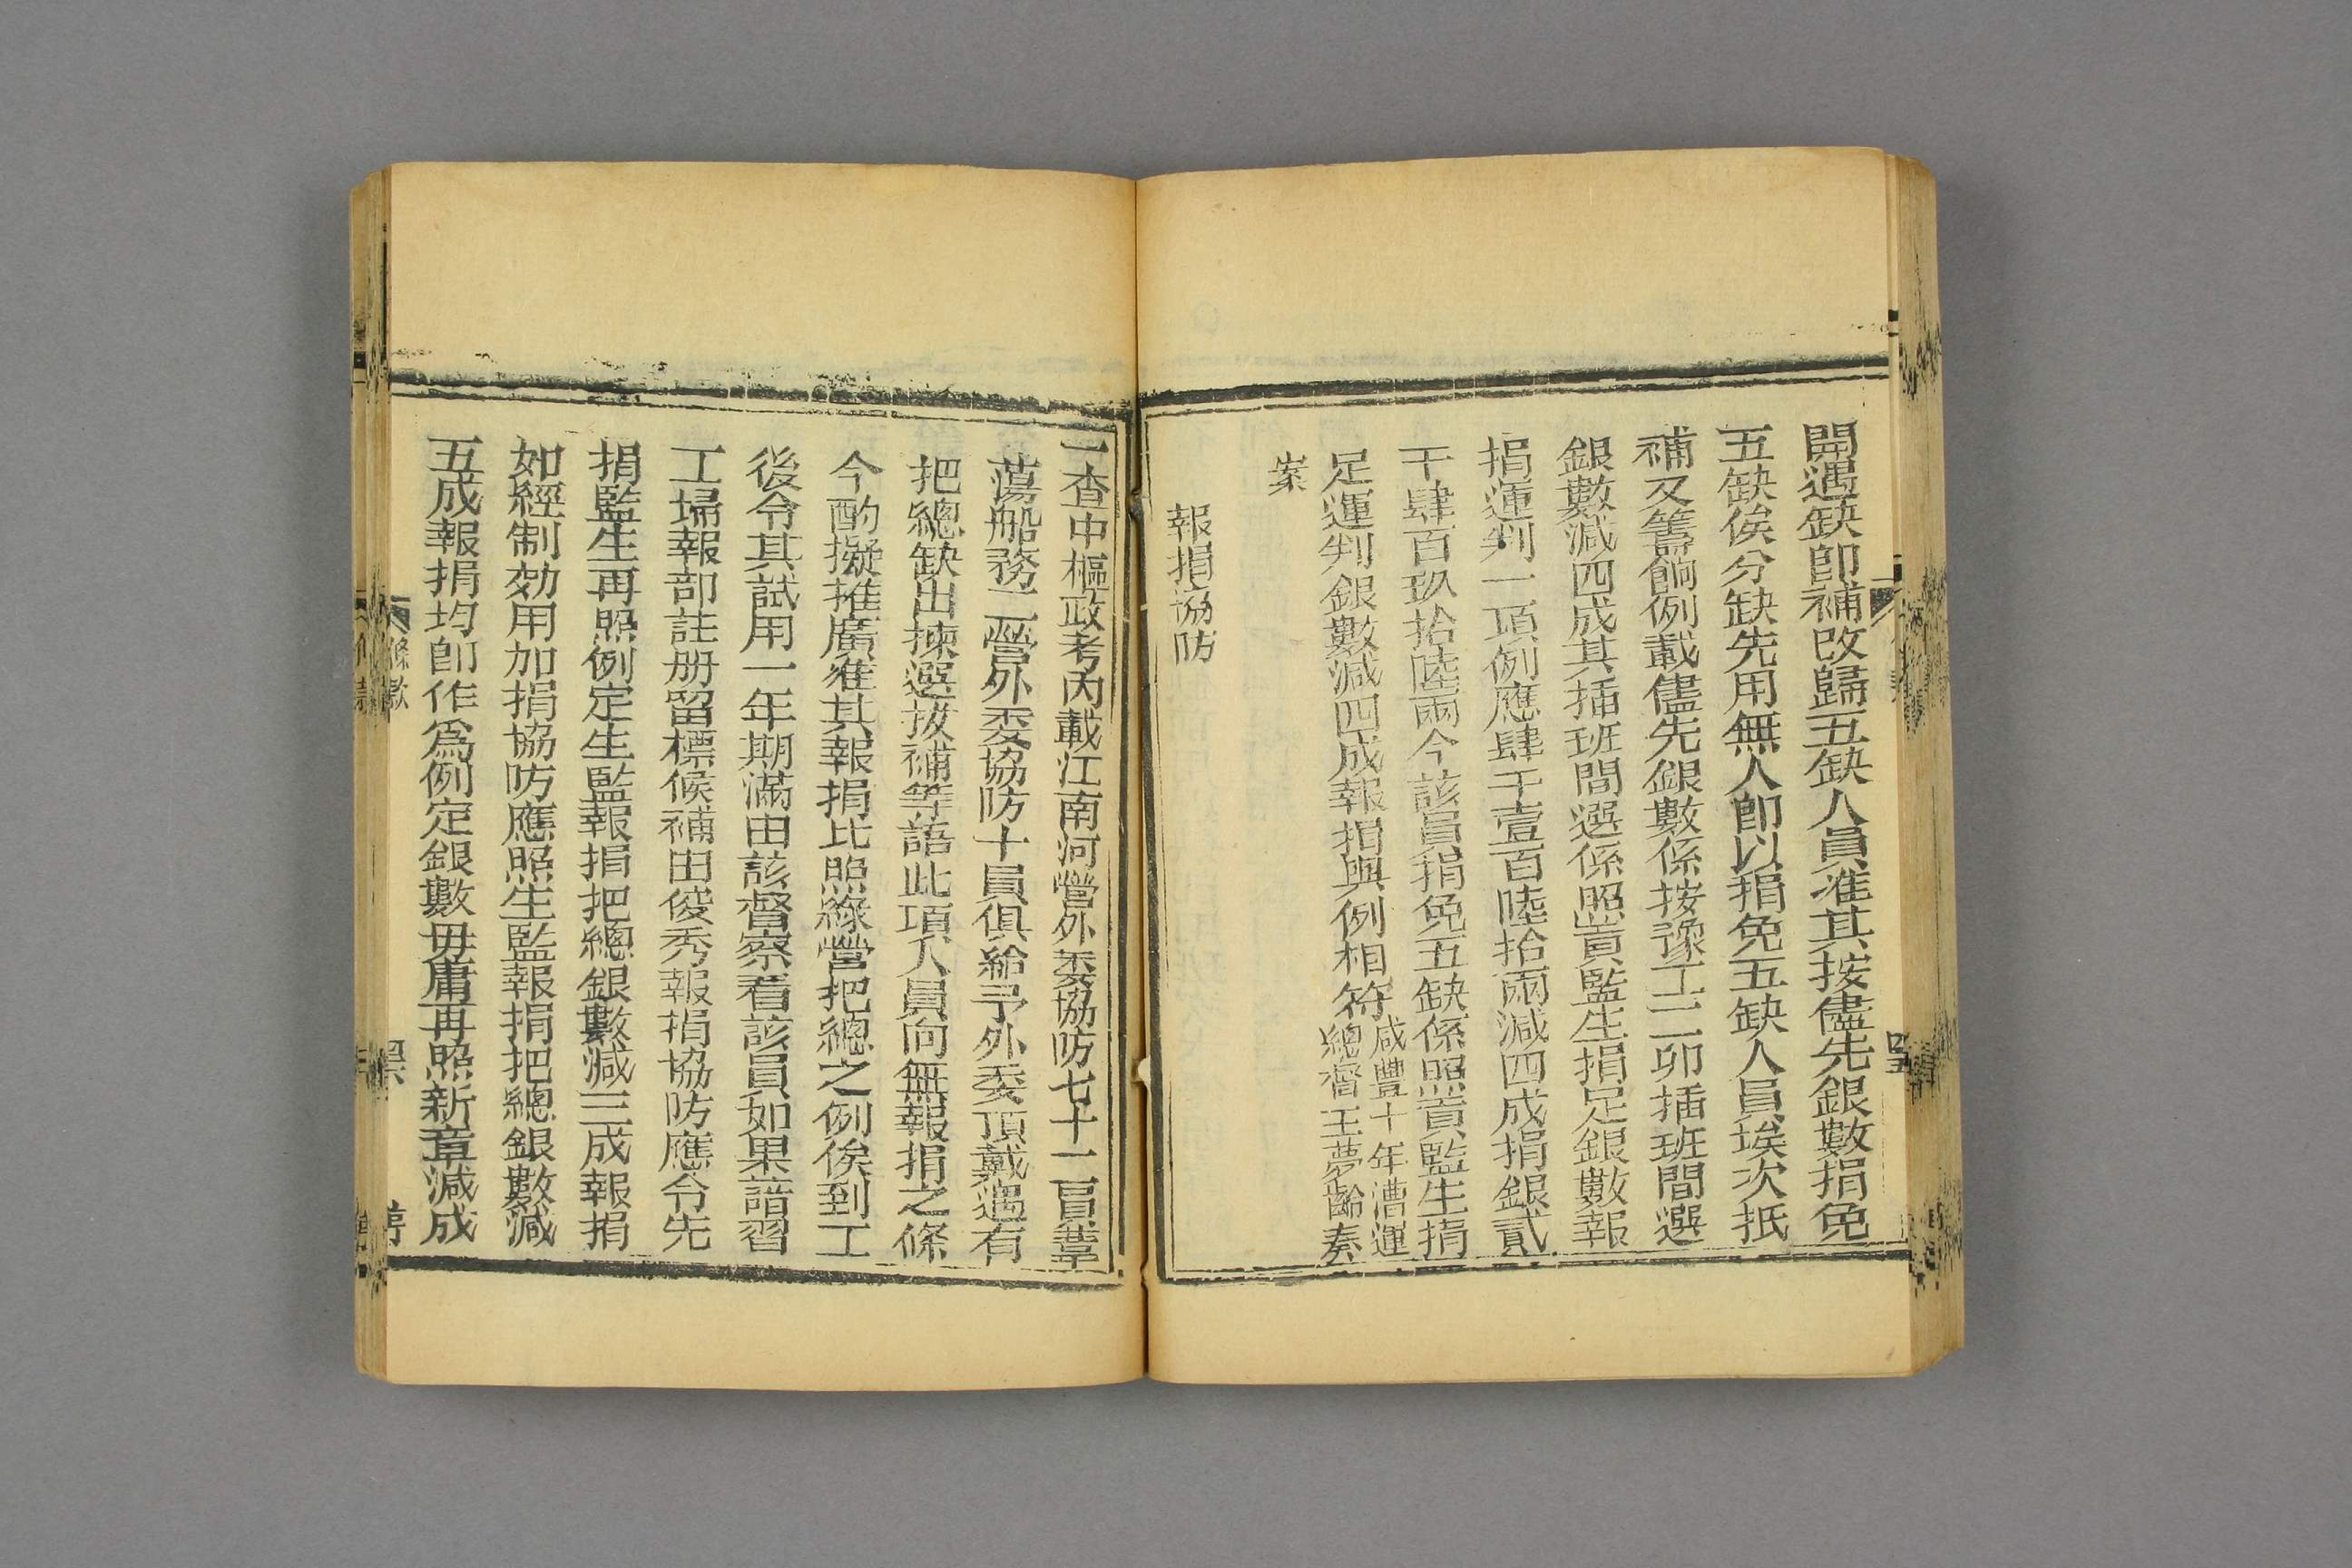 開遇缺卽補改歸五缺人員准其按儘先銀數捐免
五缺俟分缺先用無人卽以捐免五缺人員挨次抵
補又籌餉例載儘先銀數係按豫工二卯插班間選
銀數減四成其插班間選係照貢監生捐足銀數報
捐運判一項例應肆千壹百陸拾兩減四成捐銀貳
千肆百玖拾陸兩今該員捐免五缺係照貢監生捐
足運判銀數減四成報捐與例相符咸豐十年漕運
總督王夢齡奏
案
報捐協防
一查中樞政考內載江南河營外委協防七十一員葦
蕩船務二營外委協防十員俱給予外委頂戴遇有
把總缺出揀選拔補等語此項人員向無報捐之條
今酌擬推廣准其報捐比照綠營把總之例俟到工
後令其試用一年期滿由該督察看該員如果諳習
工埽報部註册留標候補由俊秀報捐協防應令先
捐監生再照例定生監報捐把總銀數減三成報捐
如經制効用加捐協防應照生監報捐把總銀數減
五成報捐均卽作爲例定銀數毋庸再照新章減成
條款